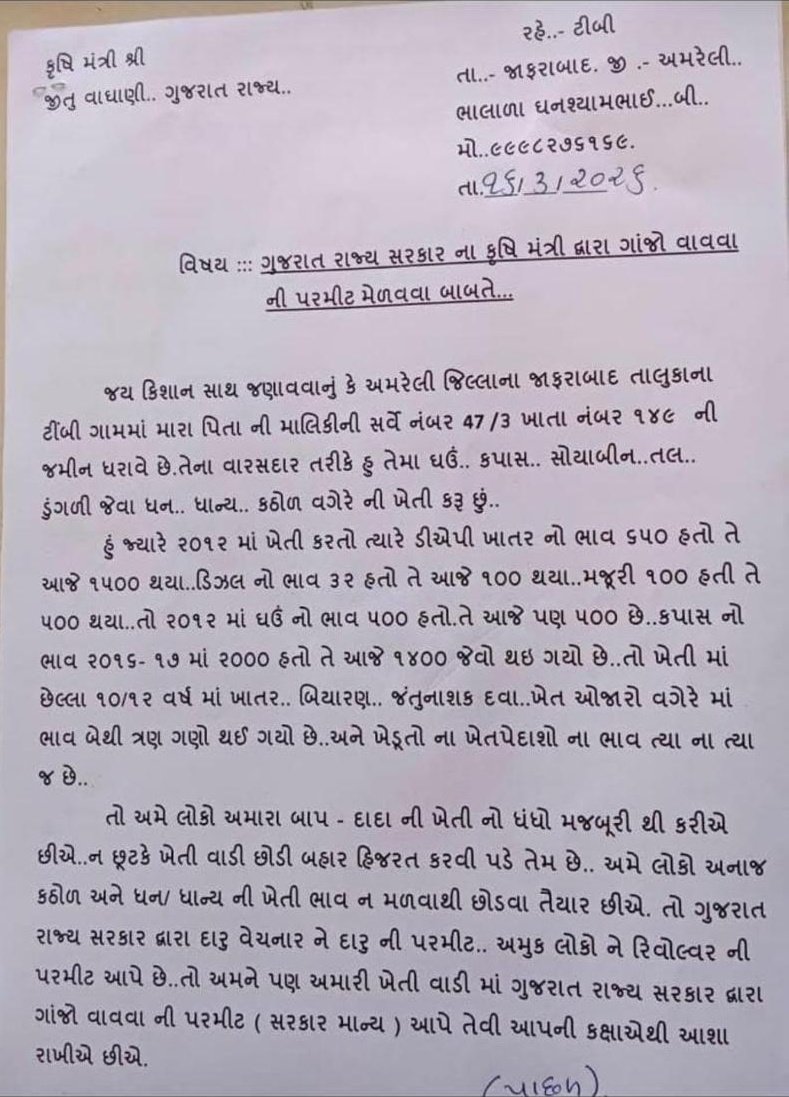 કૃષિ મંત્રી શ્રી
જીતુ વાઘાણી.. ગુજરાત રાજ્ય..
રહે..- ટીબી
તા..- જાફરાબાદ. જી .- અમરેલી..
ભાલાળા ઘનશ્યામભાઈ...બી..
મો..૯૯૯૮૨૭૬૧૬૯.
તા.૧૬/3/૨૦૨૬.
વિષય ::: ગુજરાત રાજ્ય સરકાર ના કૃષિ મંત્રી દ્વારા ગાંજો વાવવા
ની પરમીટ મેળવવા બાબતે...
જય કિશાન સાથ જણાવવાનું કે અમરેલી જિલ્લાના જાફરાબાદ તાલુકાના
ટીંબી ગામમાં મારા પિતા ની માલિકીની સર્વે નંબર 47 /3 ખાતા નંબર ૧૪૯ ની
જમીન ધરાવે છે.તેના વારસદાર તરીકે હુ તેમા ઘઉં.. કપાસ.. સોયાબીન..તલ..
ડુંગળી જેવા ધન.. ધાન્ય.. કઠોળ વગેરે ની ખેતી કરૂ છું..
હું જ્યારે ૨૦૧૨ માં ખેતી કરતો ત્યારે ડીએપી ખાતર નો ભાવ ૬૫૦ હતો તે
આજે ૧૫00 થયા..ડિઝલ નો ભાવ ૩૨ હતો તે આજે ૧00 થયા..મજૂરી ૧00 હતી તે
૫૦૦ થયા..તો ૨૦૧૨ માં ઘઉં નો ભાવ ૫૦૦ હતો.તે આજે પણ ૫૦૦ છે..કપાસ નો
ભાવ ૨૦૧૬- ૧૭ માં 2000 હતો તે આજે ૧400 જેવો થઇ ગયો છે..તો ખેતી માં
છેલ્લા ૧0/૧૨ વર્ષ માં ખાતર.. બિયારણ.. જંતુનાશક દવા..ખેત ઓજારો વગેરે માં
ભાવ બેથી ત્રણ ગણો થઈ ગયો છે..અને ખેડૂતો ના ખેતપેદાશો ના ભાવ ત્યા ના ત્યા
જ છે..
તો અમે લોકો અમારા બાપ - દાદા ની ખેતી નો ધંધો મજબૂરી થી કરીએ
છીએ..ન છૂટકે ખેતી વાડી છોડી બહાર હિજરત કરવી પડે તેમ છે.. અમે લોકો અનાજ
કઠોળ અને ધન/ ધાન્ય ની ખેતી ભાવ ન મળવાથી છોડવા તૈયાર છીએ. તો ગુજરાત
રાજ્ય સરકાર દ્વારા દારુ વેચનાર ને દારુ ની પરમીટ.. અમુક લોકો ને રિવોલ્વર ની
પરમીટ આપે છે..તો અમને પણ અમારી ખેતી વાડી માં ગુજરાત રાજ્ય સરકાર દ્વારા
ગાંજો વાવવા ની પરમીટ ( સરકાર માન્ય ) આપે તેવી આપની કક્ષાએથી આશા
રાખીએ છીએ.